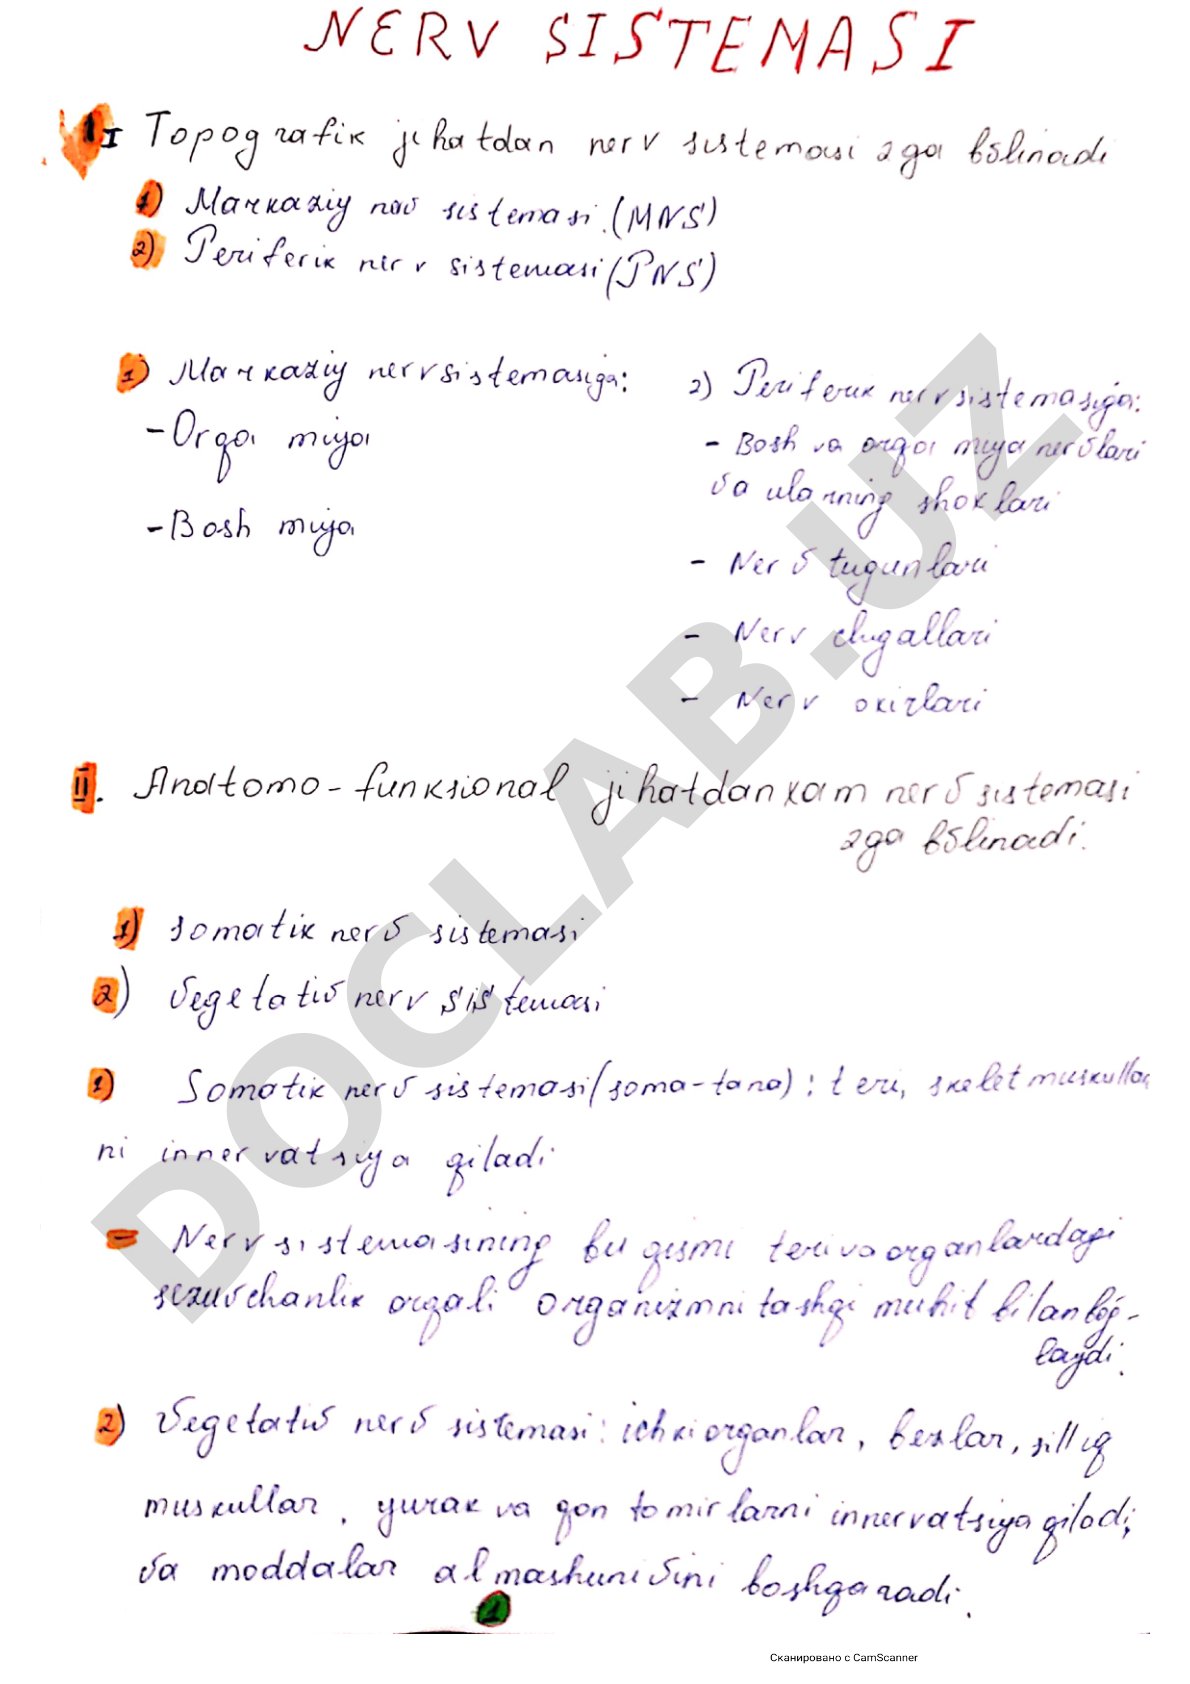 NERV SISTEMASI
I Topografik jihatdan nerv sistemasi 2ga bōlinadi
1) Markaziy nerv sistemasi.(MNS)
2) Periferik nerv sistemasi(PNS)
1) Markaziy nerv sistemasiga:
- Orqa miya
- Bosh miya
2) Periferik nerv sistemasiga:
- Bosh va orqa miya nervlari
va ularning shoxlari
- Nerv tugunlari
- Nerv chigallari
- Nerv oxirlari
II. Anatomo-funksional jihatdan xam nerv sistemasi
2ga bōlinadi.
1) somatik nerv sistemasi
2) Vegetativ nerv sistemasi
1) Somatik nerv sistemasi(soma-tana): teri, skelet muskullar
ni innervatsiya qiladi
= Nerv sistemasining bu qismi teri va organlardagi
sezuvchanlik orqali organizmni tashqi muhit bilan bog'-
laydi.
2) Vegetativ nerv sistemasi: ichki organlar, bezlar, silliq
muskullar, yurak va qon tomirlarni innervatsiya qiladi,
va moddalar almashunivini boshqaradi.
1
Сканировано с CamScanner
DOCLAB.UZ